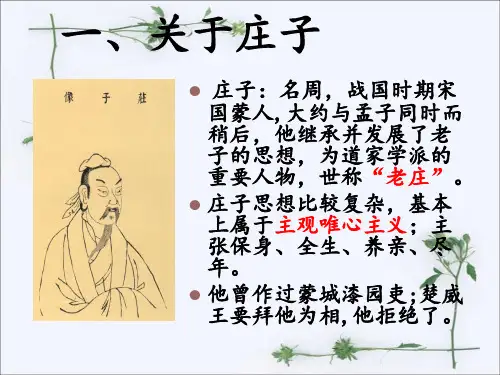 一、关于庄子
像子莊
庄子：名周，战国时期宋
国蒙人,大约与孟子同时而
稍后，他继承并发展了老
子的思想，为道家学派的
重要人物，世称“老庄”。
庄子思想比较复杂，基本
上属于主观唯心主义；主
张保身、全生、养亲、尽
年。
他曾作过蒙城漆园吏;楚威
王要拜他为相,他拒绝了。